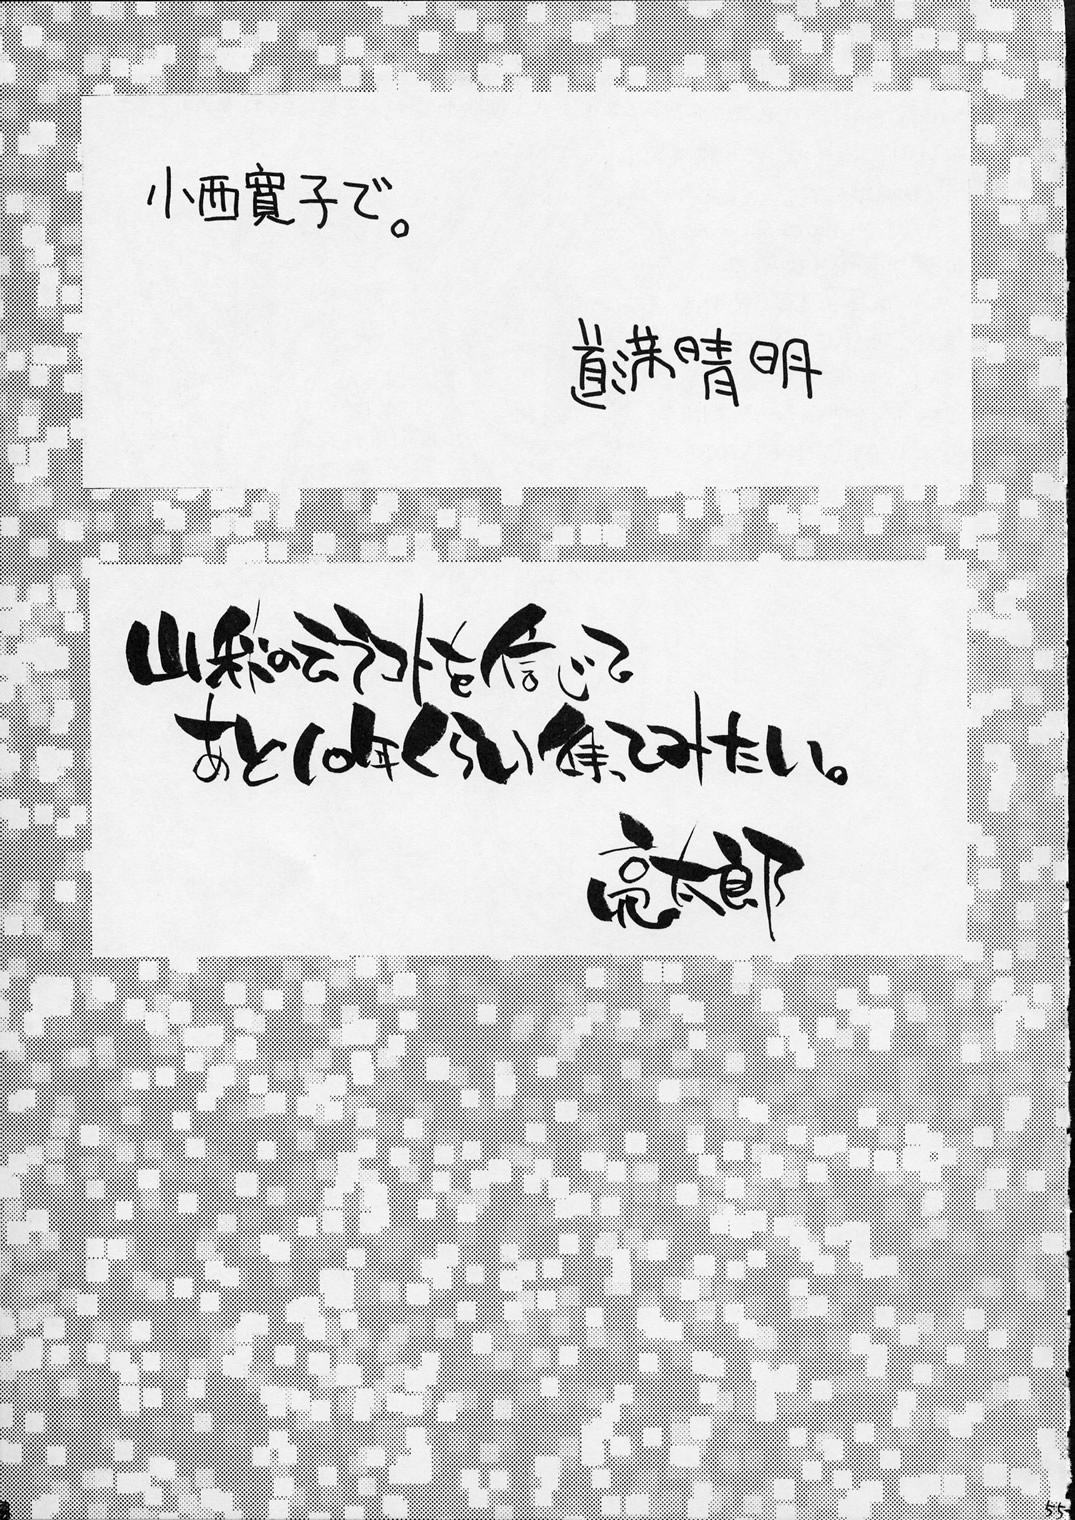 小西寛子で。
道満晴明
山彩のデラコトを信じて
あと10年くらい待ってみたい。
亮太郎
55